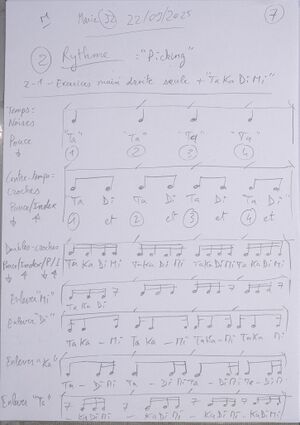 Marie 32 22/09/2025 7
2 Rythme : "Picking"
2-1-Exercices main droite seule + "TaKaDiMi"
Temps:
Noires "Ta" "Ta" "Ta" "Ta"
Pouce 1 2 3 4
Contre-temps:
Croches Ta Di Ta Di Ta Di Ta Di
Pouce/Index 1 et 2 et 3 et 4 et
Doubles-croches
Pouce/Index/P/I Ta Ka Di Mi Ta Ka Di Mi TaKaDiMi TaKaDiMi
Enlever "Mi" Ta Ka Di
Enlever "Di" Ta Ka - Mi Ta Ka - Mi TaKa - Mi TaKa Mi
Enlever "Ka" Ta - Di Mi Ta - Di Mi Ta - Di Mi Ta - Di Mi
Enlever "Ta" - KaDiMi - KaDiMi - KaDiMi - KaDiMi